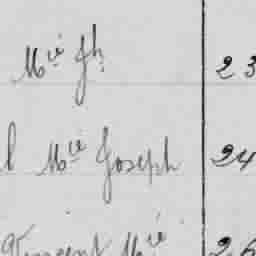 Mié Jh 23
Mié Joseph 24
Vincent Mié 26